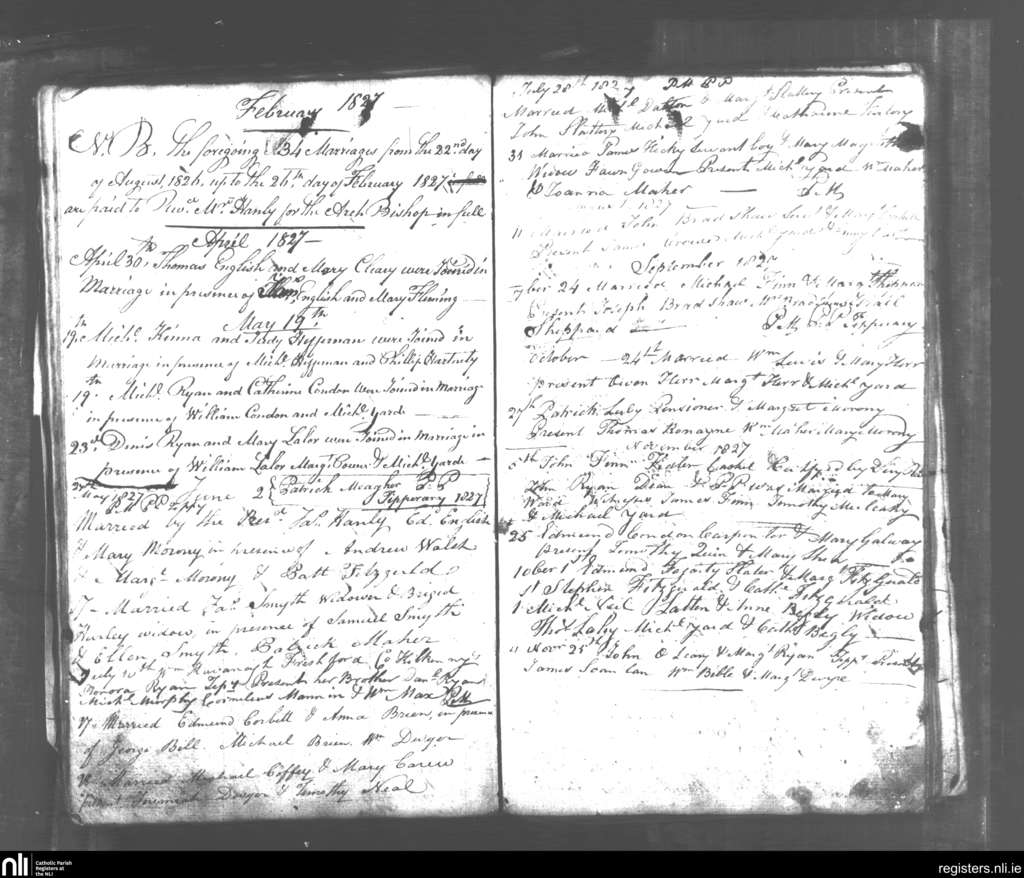 February 1827
N. B. The foregoing 34 Mariages from the 22nd day
of August, 1826, up to the 26th day of February 1827
are paid to Revd Mr Hanly for the Arch Bishop in full
April 1827
April 30th Thomas English and Mary Cleary were Joined in
Marriage in presence of Thos English and Mary Fleming
May 19th
19th Michl Kenna and Judy Heffernan were Joined in
Marriage in presence of Michl Heffernan and Phillip
19th Michl Ryan and Catherine Condon were Joined in Marriage
in presence of William Condon and Michl Yard
23d Denis Ryan and Mary Lalor were Joined in Marriage in
presence of William Lalor Margt and Michl Yard
May 1827 June 2 Patrick Meagher P. P.
P M PP Tippy Tipperary 1827
Married by the Revd Jas Hanly, Ed. English
& Mary Morony in presence of Andrew Walsh
& Margt Morony & Patt Fitzgerald
17 Married Jas Smyth Widower & Briged
Hurley widow, in presence of Samuel Smyth
& Ellen Smyth. Patrick Maher
July Wm Kavanagh Freshford Co Kilkenny &
Honora Ryan Tipy Present her Brother Danl Ryan
Michl Murphy Cornelius Mannin & Wm Max
17 Married Edmund Corbett & Anna Brien, in presence
of George Bell. Michael Brien. Wm Dwyer
Married Michael Coffey & Mary Carew
present Jeremiah Dwyer & Timothy Neal
July 28th 1827 P M P P
Married Michl Dalton & Margt Slattery Present
John Slattery Michael Yard & Catharine
31 Married James Hicky Servant boy & Mary
Widow Present Michl Yard Wm Maher
& Joanna Maher P M
11 Married John Bradshaw & Margt
Present James Michl Yard &
September 1827
24 Married Michael Finn & Margt
Present Joseph Bradshaw, Wm Bradshaw &
Sheppard P M P P Tipperary
October 24th Married Wm Lewis & Mary Herr
present Owen Herr Margt Herr & Michl Yard
27th Patrick Luby Pensioner & Margret Morony
Present Thomas Ronayne Wm Maher Mary Morony
November 1827
5th John Finn Cashel Certified by
John Ryan Dean & P. P. was Married to Mary
Ward Witneses James Finn Timothy McCarthy
& Michael Yard
25 Edmund Condon Carpinter & Mary Galway
Present Timothy Quin & Mary Shea
10ber 1 Edmund Fogarty Slater & Margt FitzGerald
1st Stephen Fitzgerald & Cathe FitzGerald
1 Michl & Anne Begly Widow
Thos Laby Michl Yard & Cathe Begly
" Novr 25 John O Leary & Margt Ryan Tippy
James Scanlan Wm Bible & Margt Dwyre
nli
Catholic Parish
Registers at
the NLI
registers.nli.ie